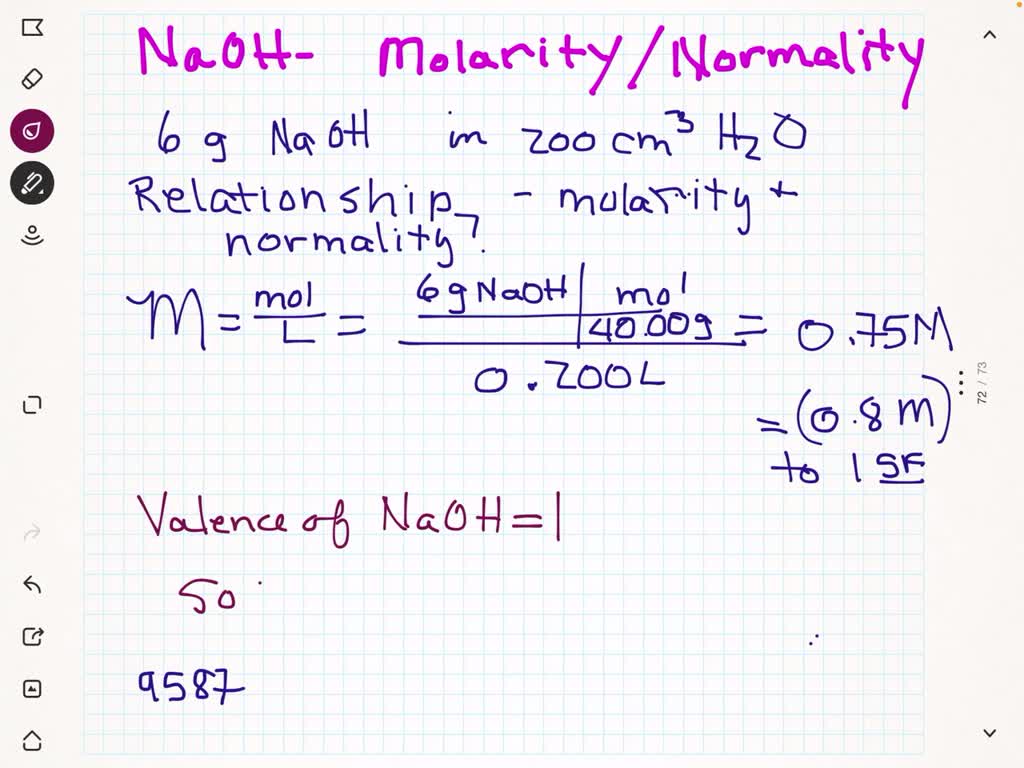 NaOH- Molarity/Normality
6 g NaOH in 200 cm³ H₂O
Relationship - molarity +
normality?
M = mol/L = 6 g NaOH | mol / 40.00g / 0.200L = 0.75M
= (0.8 M)
to 1 SF
72 / 73
Valence of NaOH = 1
So
9587